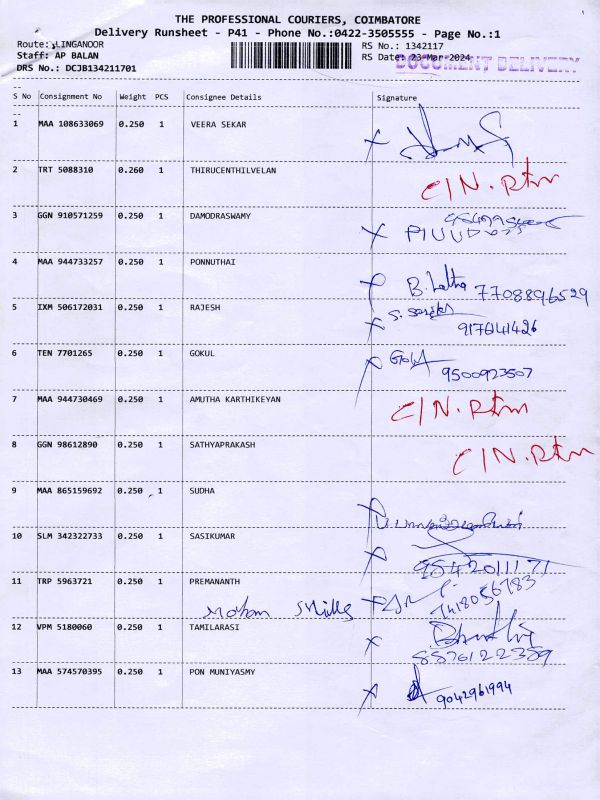 THE PROFESSIONAL COURIERS, COIMBATORE
Delivery Runsheet - P41 - Phone No.:0422-3505555 - Page No.:1
Route: LINGANOOR RS No.: 1342117
Staff: AP BALAN RS Date: 23-Mar-2024
DOCUMENT DELIVERY
DRS No.: DCJB134211701
S No Consignment No Weight PCS Consignee Details Signature
1 MAA 108633069 0.250 1 VEERA SEKAR
2 TRT 5088310 0.260 1 THIRUCENTHILVELAN C/N. Rtn
3 GGN 910571259 0.250 1 DAMODRASWAMY
4 MAA 944733257 0.250 1 PONNUTHAI B. Latha 7708896529
5 IXM 506172031 0.250 1 RAJESH
917641426
6 TEN 7701265 0.250 1 GOKUL Gokul
9500923507
7 MAA 944730469 0.250 1 AMUTHA KARTHIKEYAN C/N. Rtn
8 GGN 98612890 0.250 1 SATHYAPRAKASH C/N. Rtn
9 MAA 865159692 0.250 1 SUDHA
10 SLM 342322733 0.250 1 SASIKUMAR
9542011171
11 TRP 5963721 0.250 1 PREMANANTH
Mohan Mills 7418056783
12 VPM 5180060 0.250 1 TAMILARASI
8876122389
13 MAA 574570395 0.250 1 PON MUNIYASMY
9042961994